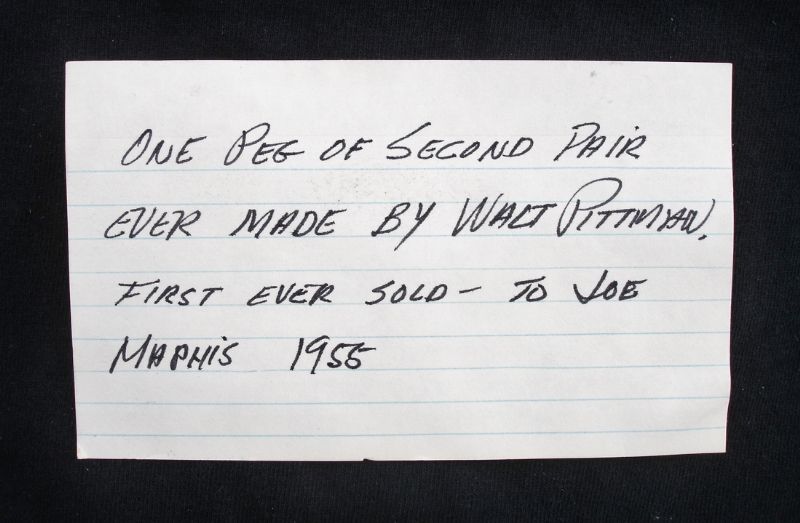 ONE PEG OF SECOND PAIR
EVER MADE BY WALT PITTMAN.
FIRST EVER SOLD – TO JOE
MAPHIS 1955